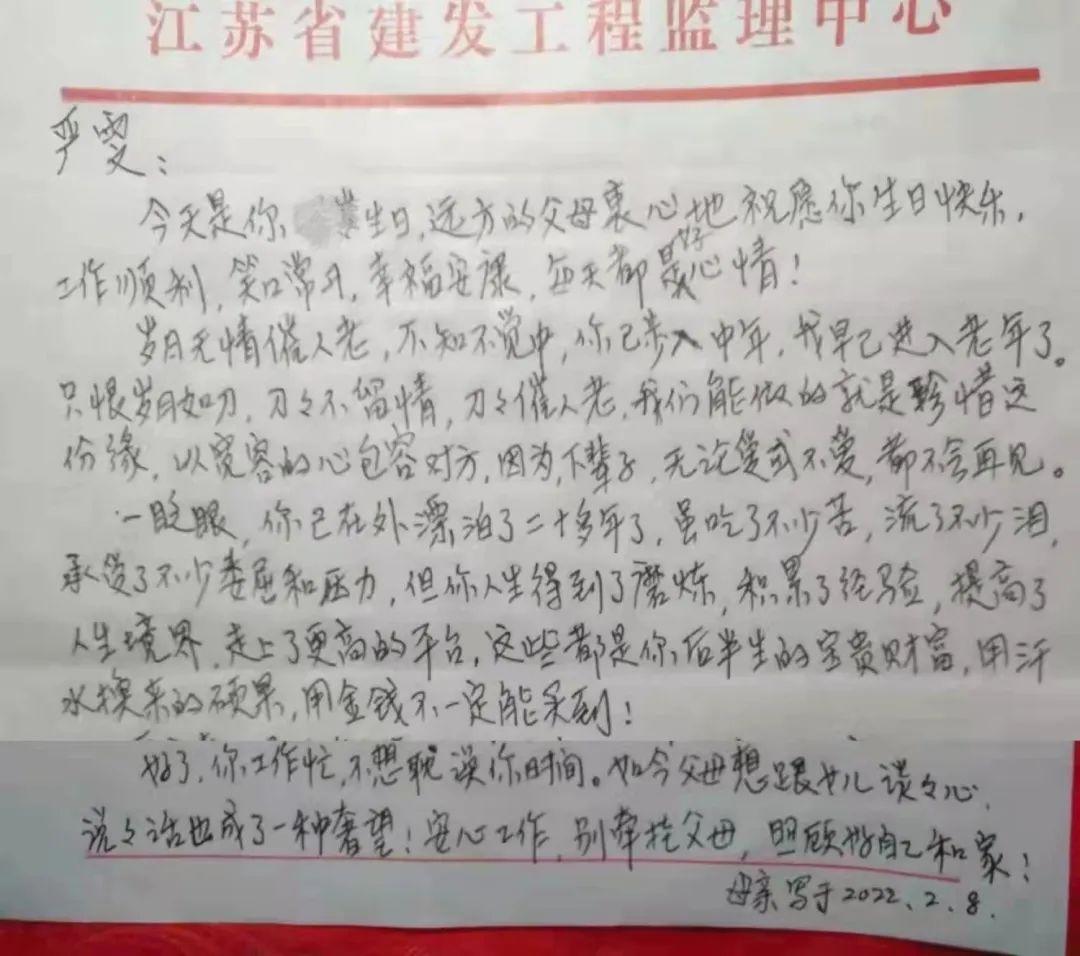 江苏省建发工程监理中心
严雯：
今天是你 生日，远方的父母衷心地祝愿你生日快乐，
工作顺利，笑口常开，幸福安康，每天都是好心情！
岁月无情催人老，不知不觉中，你已步入中年，我早已进入老年了。
只恨岁月如刀，刀々不留情，刀々催人老，我们能做的就是珍惜这
份缘，以宽容的心包容对方，因为，下辈子，无论爱或不爱，都不会再见。
一眨眼，你已在外漂泊了二十多年了，虽吃了不少苦，流了不少泪，
承受了不少委屈和压力，但你人生得到了磨炼，积累了经验，提高了
人生境界，走上了更高的平台，这些都是你后半生的宝贵财富，用汗
水换来的硕果，用金钱不一定能买到！
好了，你工作忙，不想耽误你时间。如今父母想跟女儿谈々心，
说々话也成了一种奢望！安心工作，别牵挂父母，照顾好自己和家！
母亲写于2022.2.8.